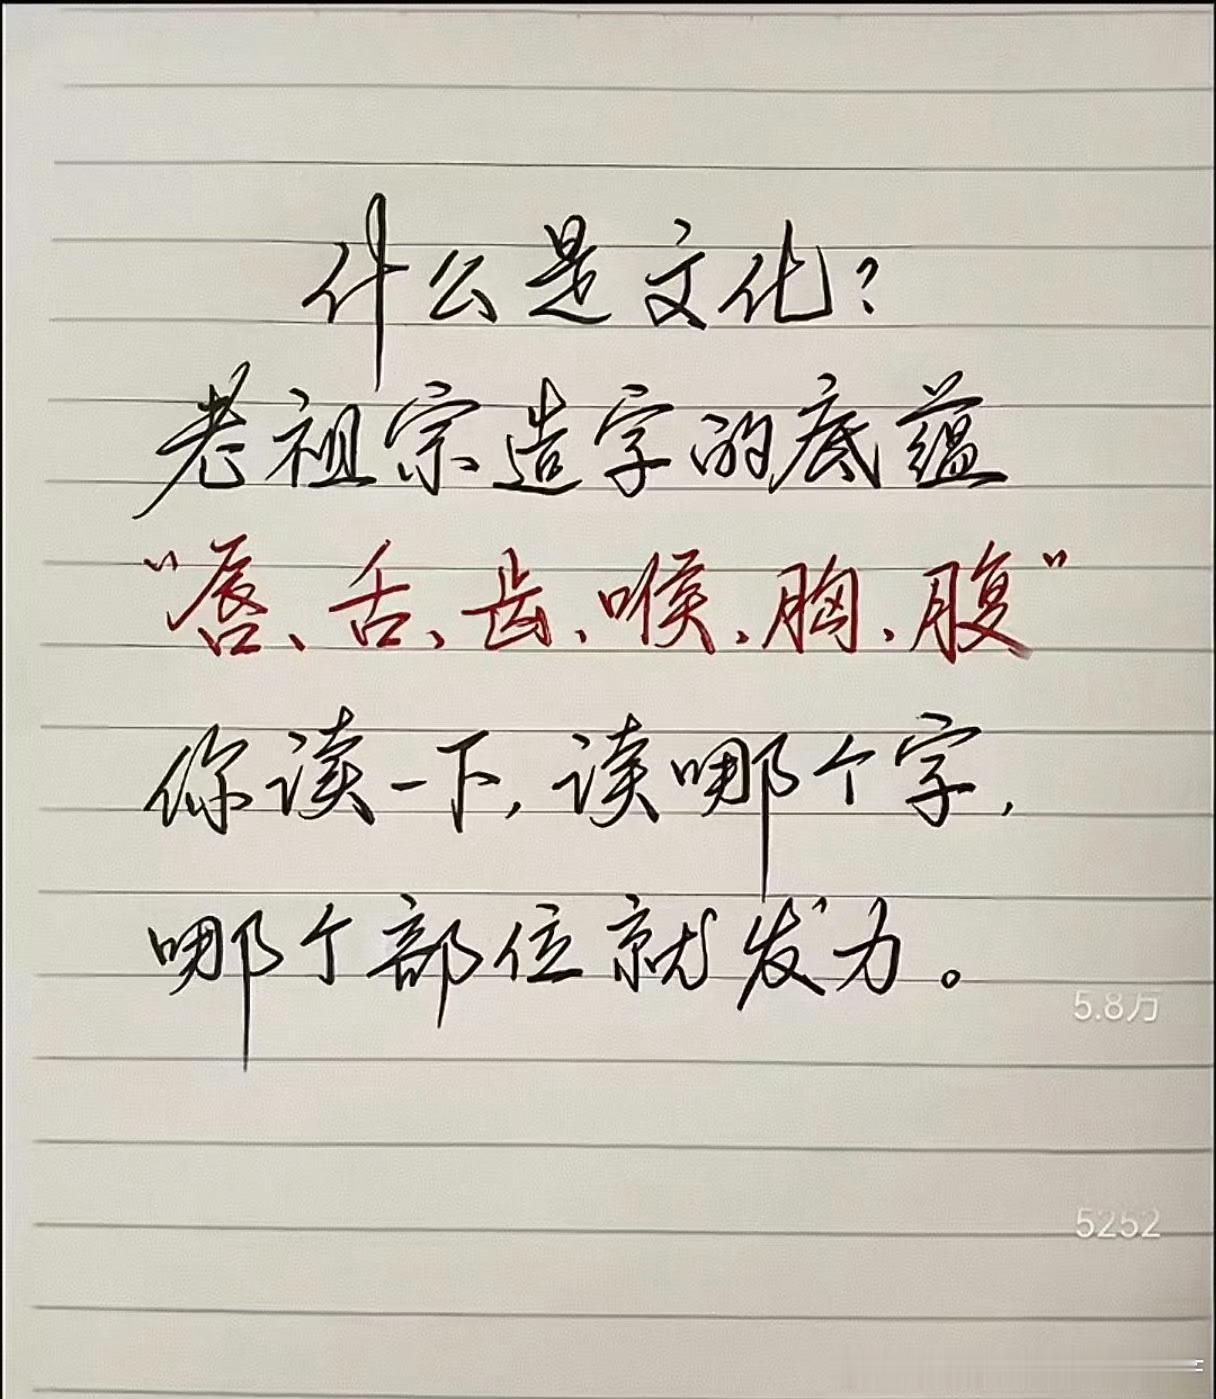 什么是文化?
老祖宗造字的底蕴
“唇、舌、齿、喉、胸、腹”
你读一下,读哪个字,
哪个部位就发力。
5.8万
5252